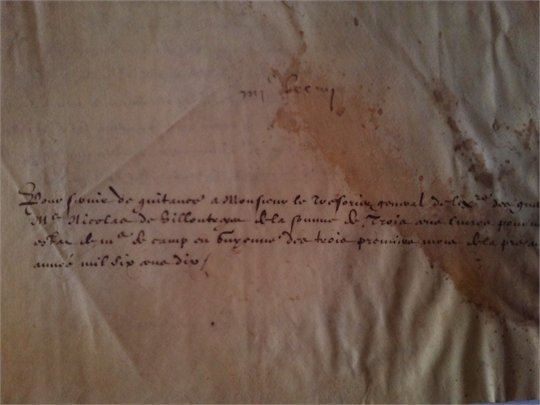 Pour servir de quitance a Monsieur le Tresorier general de lex^re des gue
M^e Nicolas de Villoutreys de la somme de Trois cens livres pour
estat de m^e de camp en Guyenne des trois premiers mois de la pres
année mil six cens dix